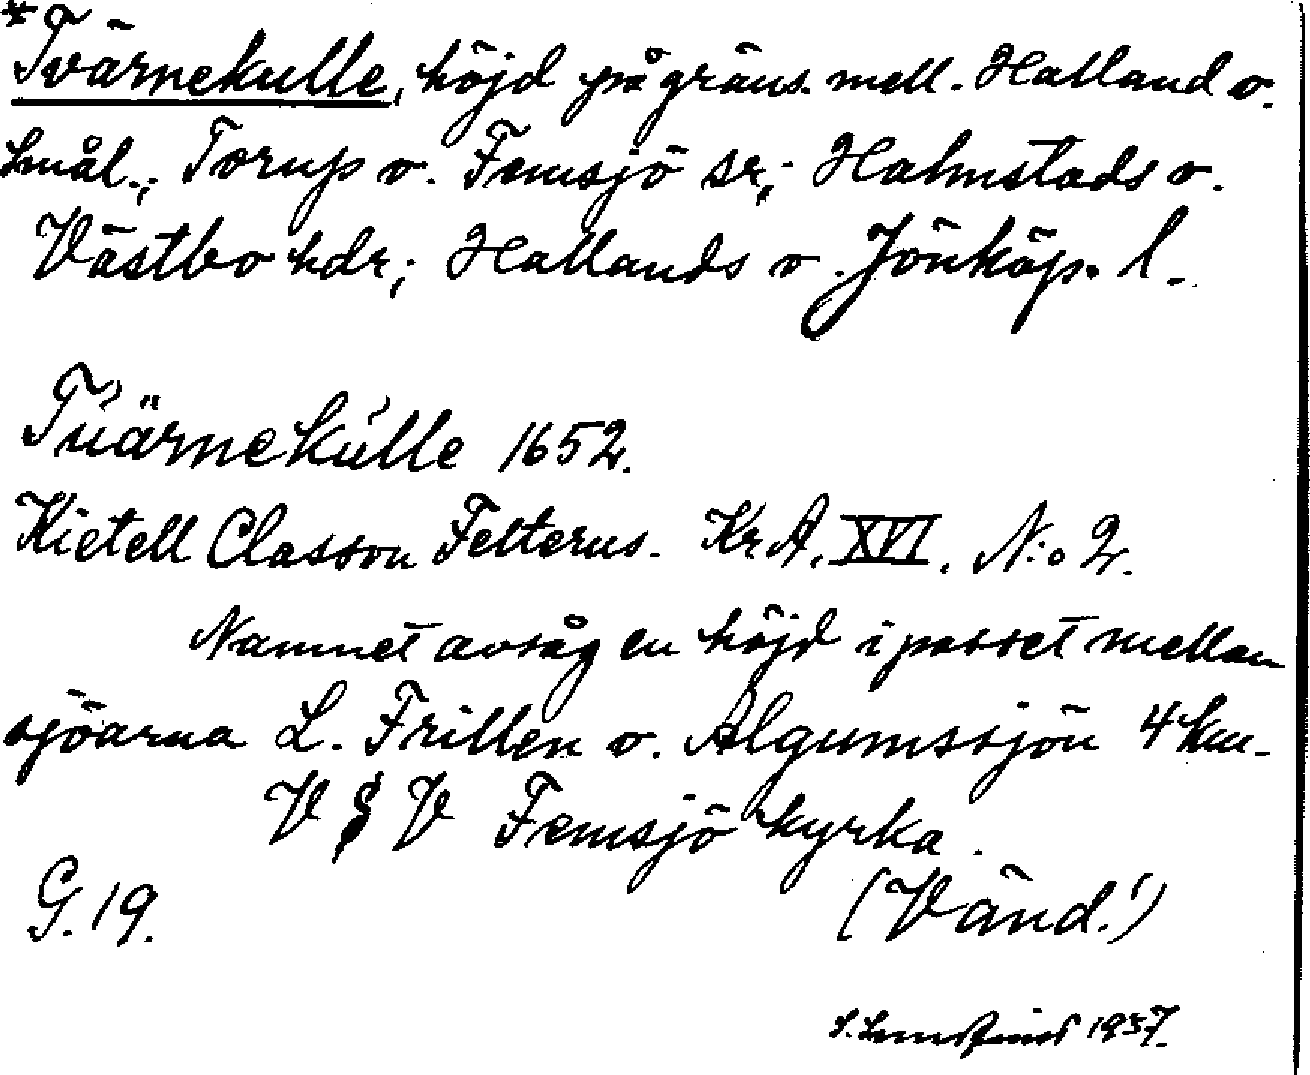 *Tvärnekulle, höjd på gräns. mell. Halland o.
Smål.; Torup o. Femsjö sr; Halmstads o.
Västbo hdr; Hallands o. Jönköp. l.
Tüärnekulle 1652.
Kietell Classon Felterus. Kr A. XVI. N:o 2.
Namnet avsåg en höjd i passet mellan
sjöarna L. Frillen o. Älgumssjön 4 km.
V § V Femsjö kyrka.
G. 19.
(Vänd!)
1937.